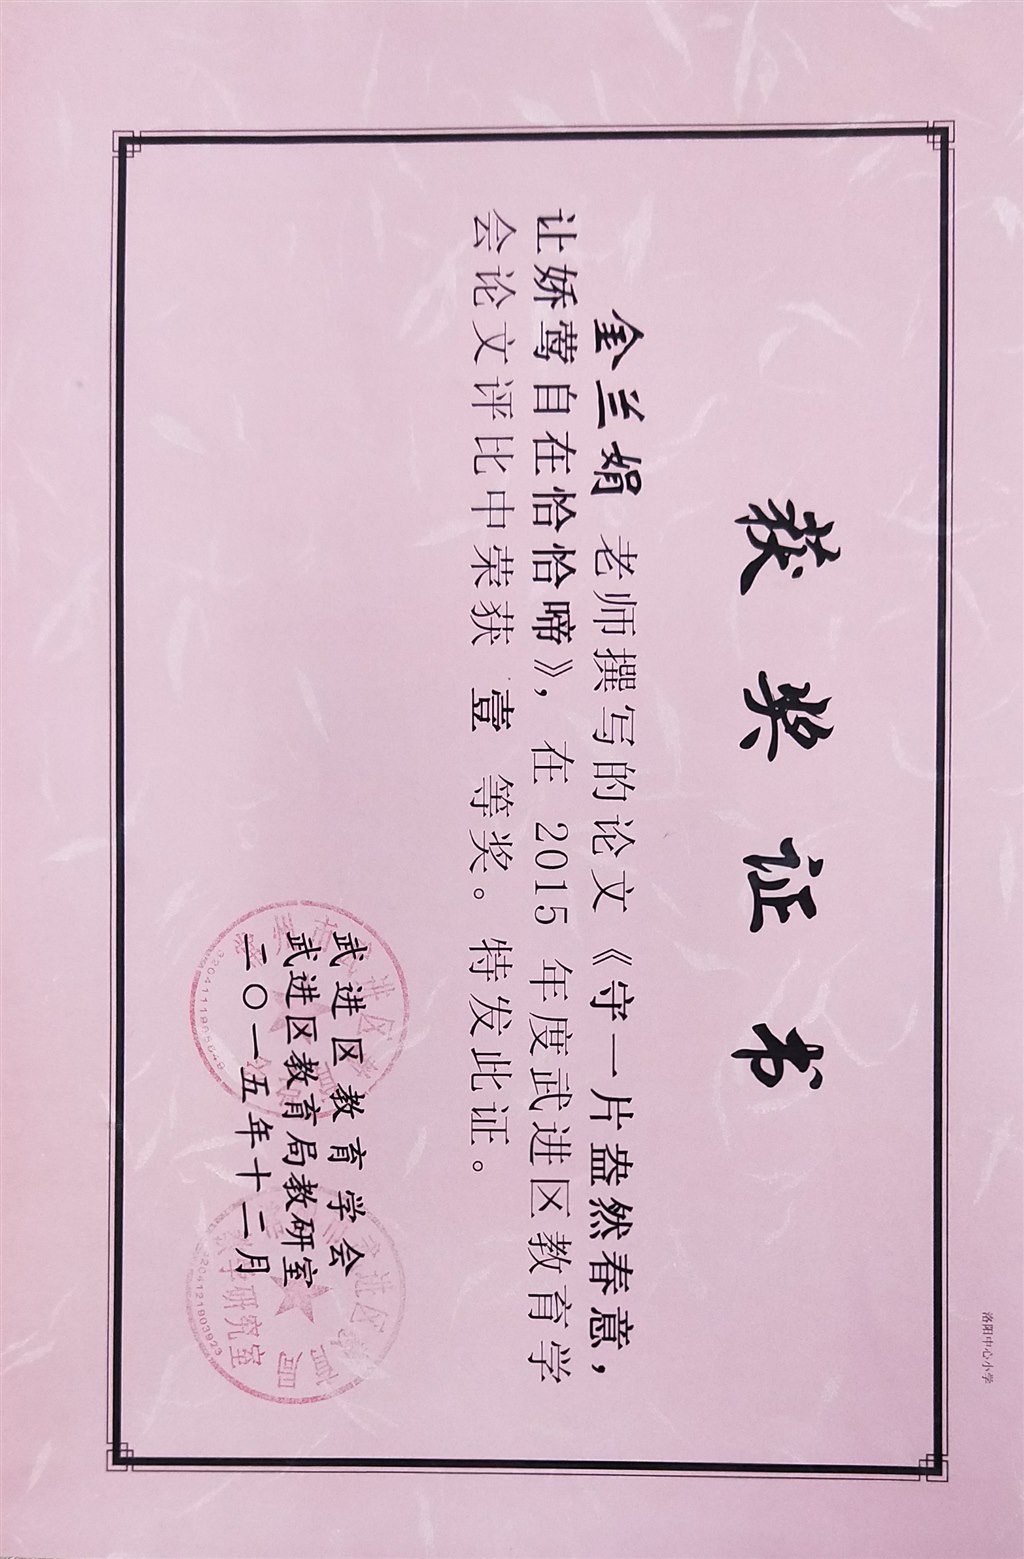 洛阳中心小学
获奖证书
金兰娟 老师撰写的论文《守一片盎然春意，
让娇莺自在恰恰啼》，在 2015 年度武进区教育学
会论文评比中荣获 壹 等奖。特发此证。
武进区教育学会
武进区教育局教研室
二〇一五年十二月
教学研究室